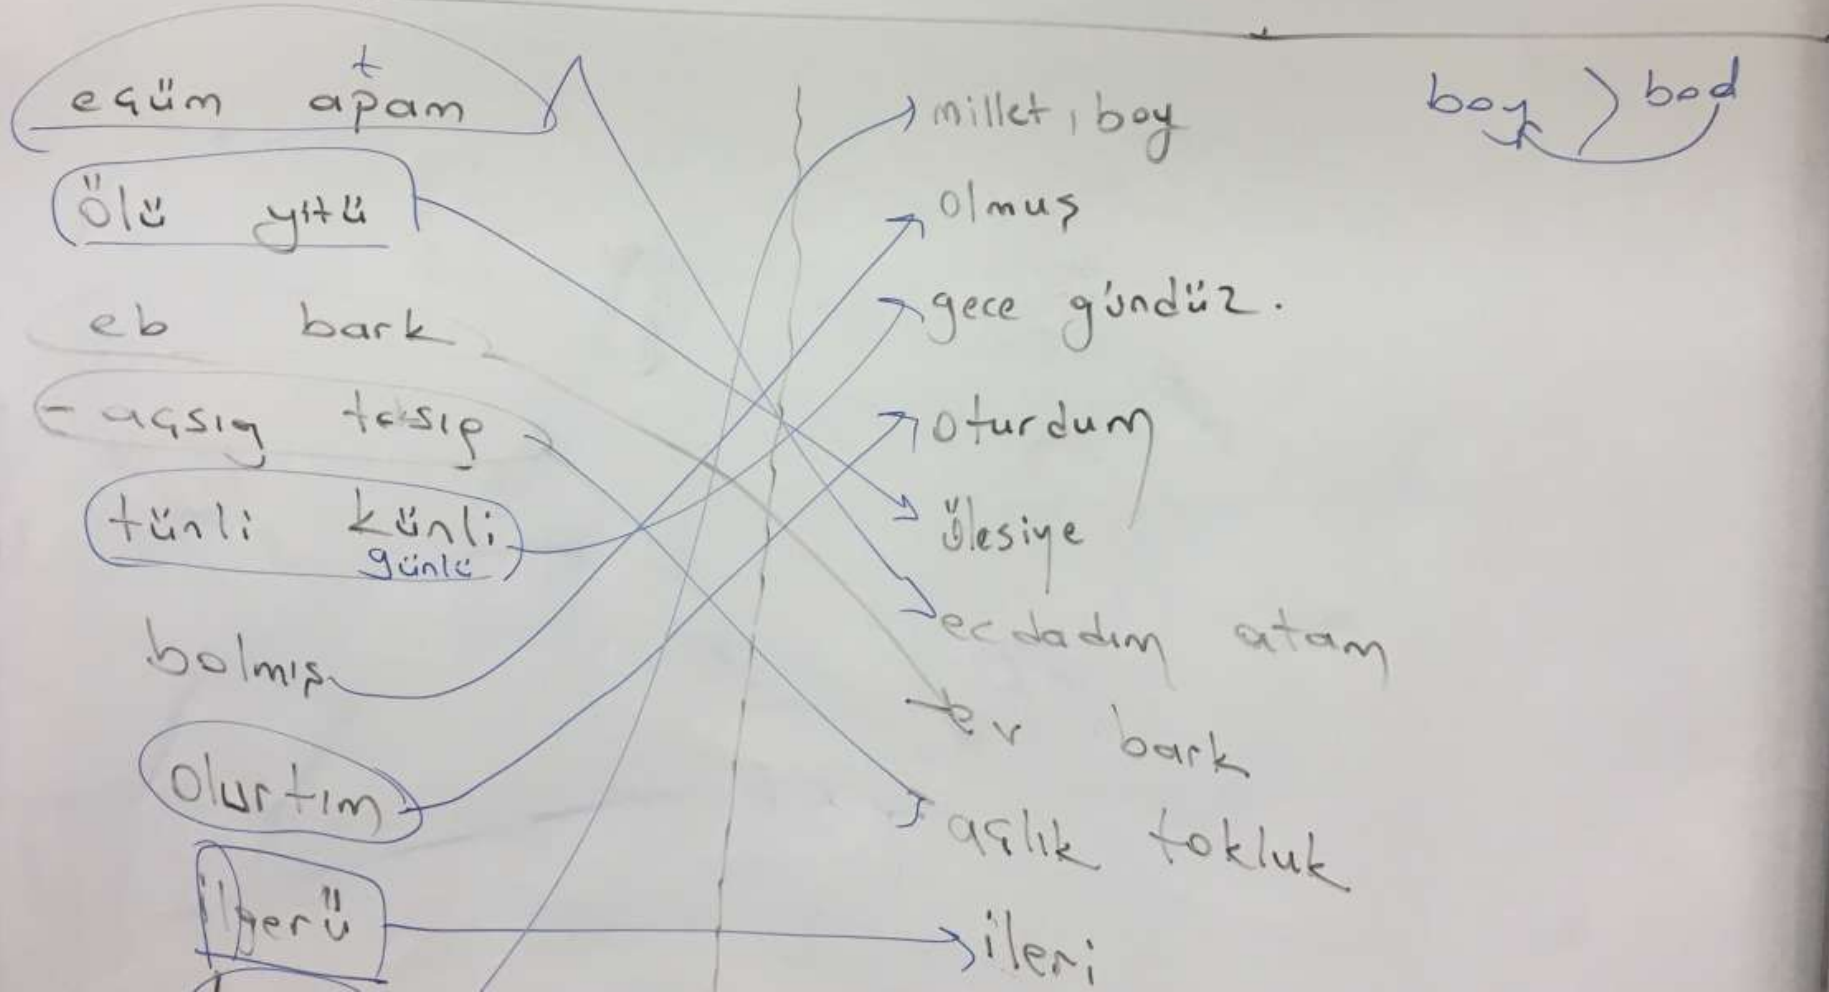 eçüm apam
t
ölü yitü
eb bark
- açsıg tosıg
tünli künli
günlü
bolmış
olurtım
ilgerü
millet, boy
olmuş
gece gündüz.
oturdum
ölesiye
ecdadım atam
ev bark
açlık tokluk
ileri
boy > bod